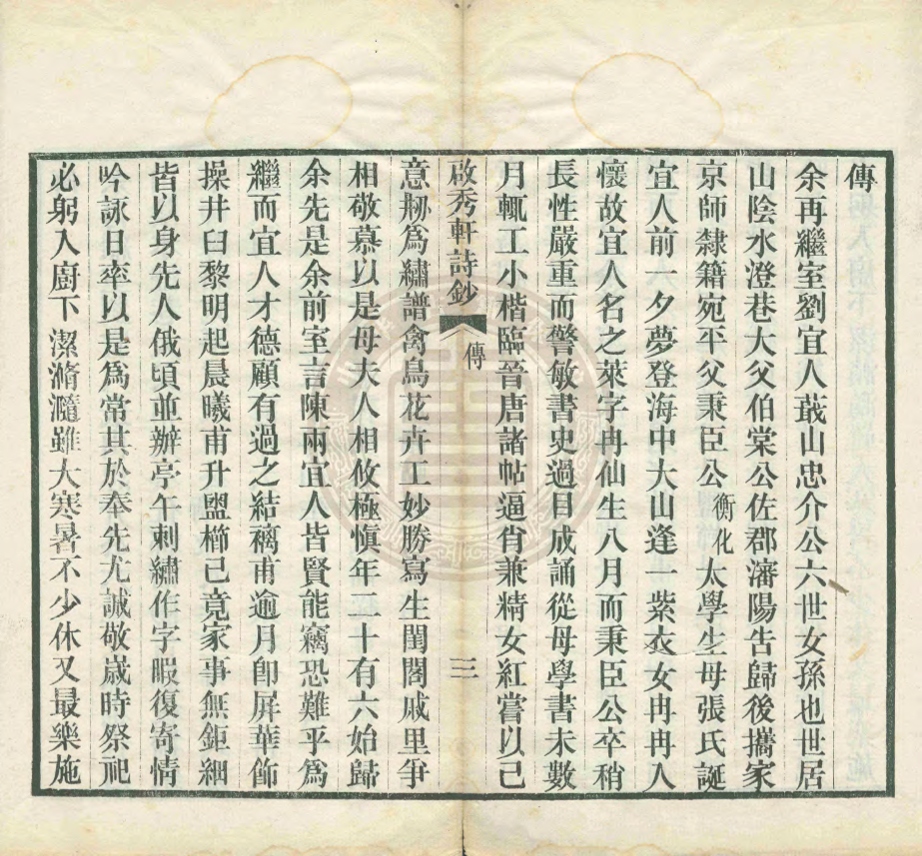 傳
余再繼室劉宜人蕺山忠介公六世女孫也世居
山陰水澄巷大父伯棠公佐郡瀋陽告歸後攜家
京師隸籍宛平父秉臣公衡化太學生母張氏誕
宜人前一夕夢登海中大山逢一紫衣女冉冉入
懷故宜人名之萊字冉仙生八月而秉臣公卒稍
長性嚴重而警敏書史過目成誦從母學書未數
月輒工小楷臨晉唐諸帖逼肖兼精女紅嘗以己
啟秀軒詩鈔 傳 三
意剏為繡譜禽鳥花卉工妙勝寫生閨閣戚里爭
相敬慕以是母夫人相攸極慎年二十有六始歸
余先是余前室言陳兩宜人皆賢能竊恐難乎為
繼而宜人才德顧有過之結褵甫逾月卽屏華飾
操井臼黎明起晨曦甫升盥櫛已竟家事無鉅細
皆以身先人俄頃並辦亭午刺繡作字暇復寄情
吟詠日率以是為常其於奉先尤誠敬歲時祭祀
必躬入廚下潔滫瀡雖大寒暑不少休又最樂施